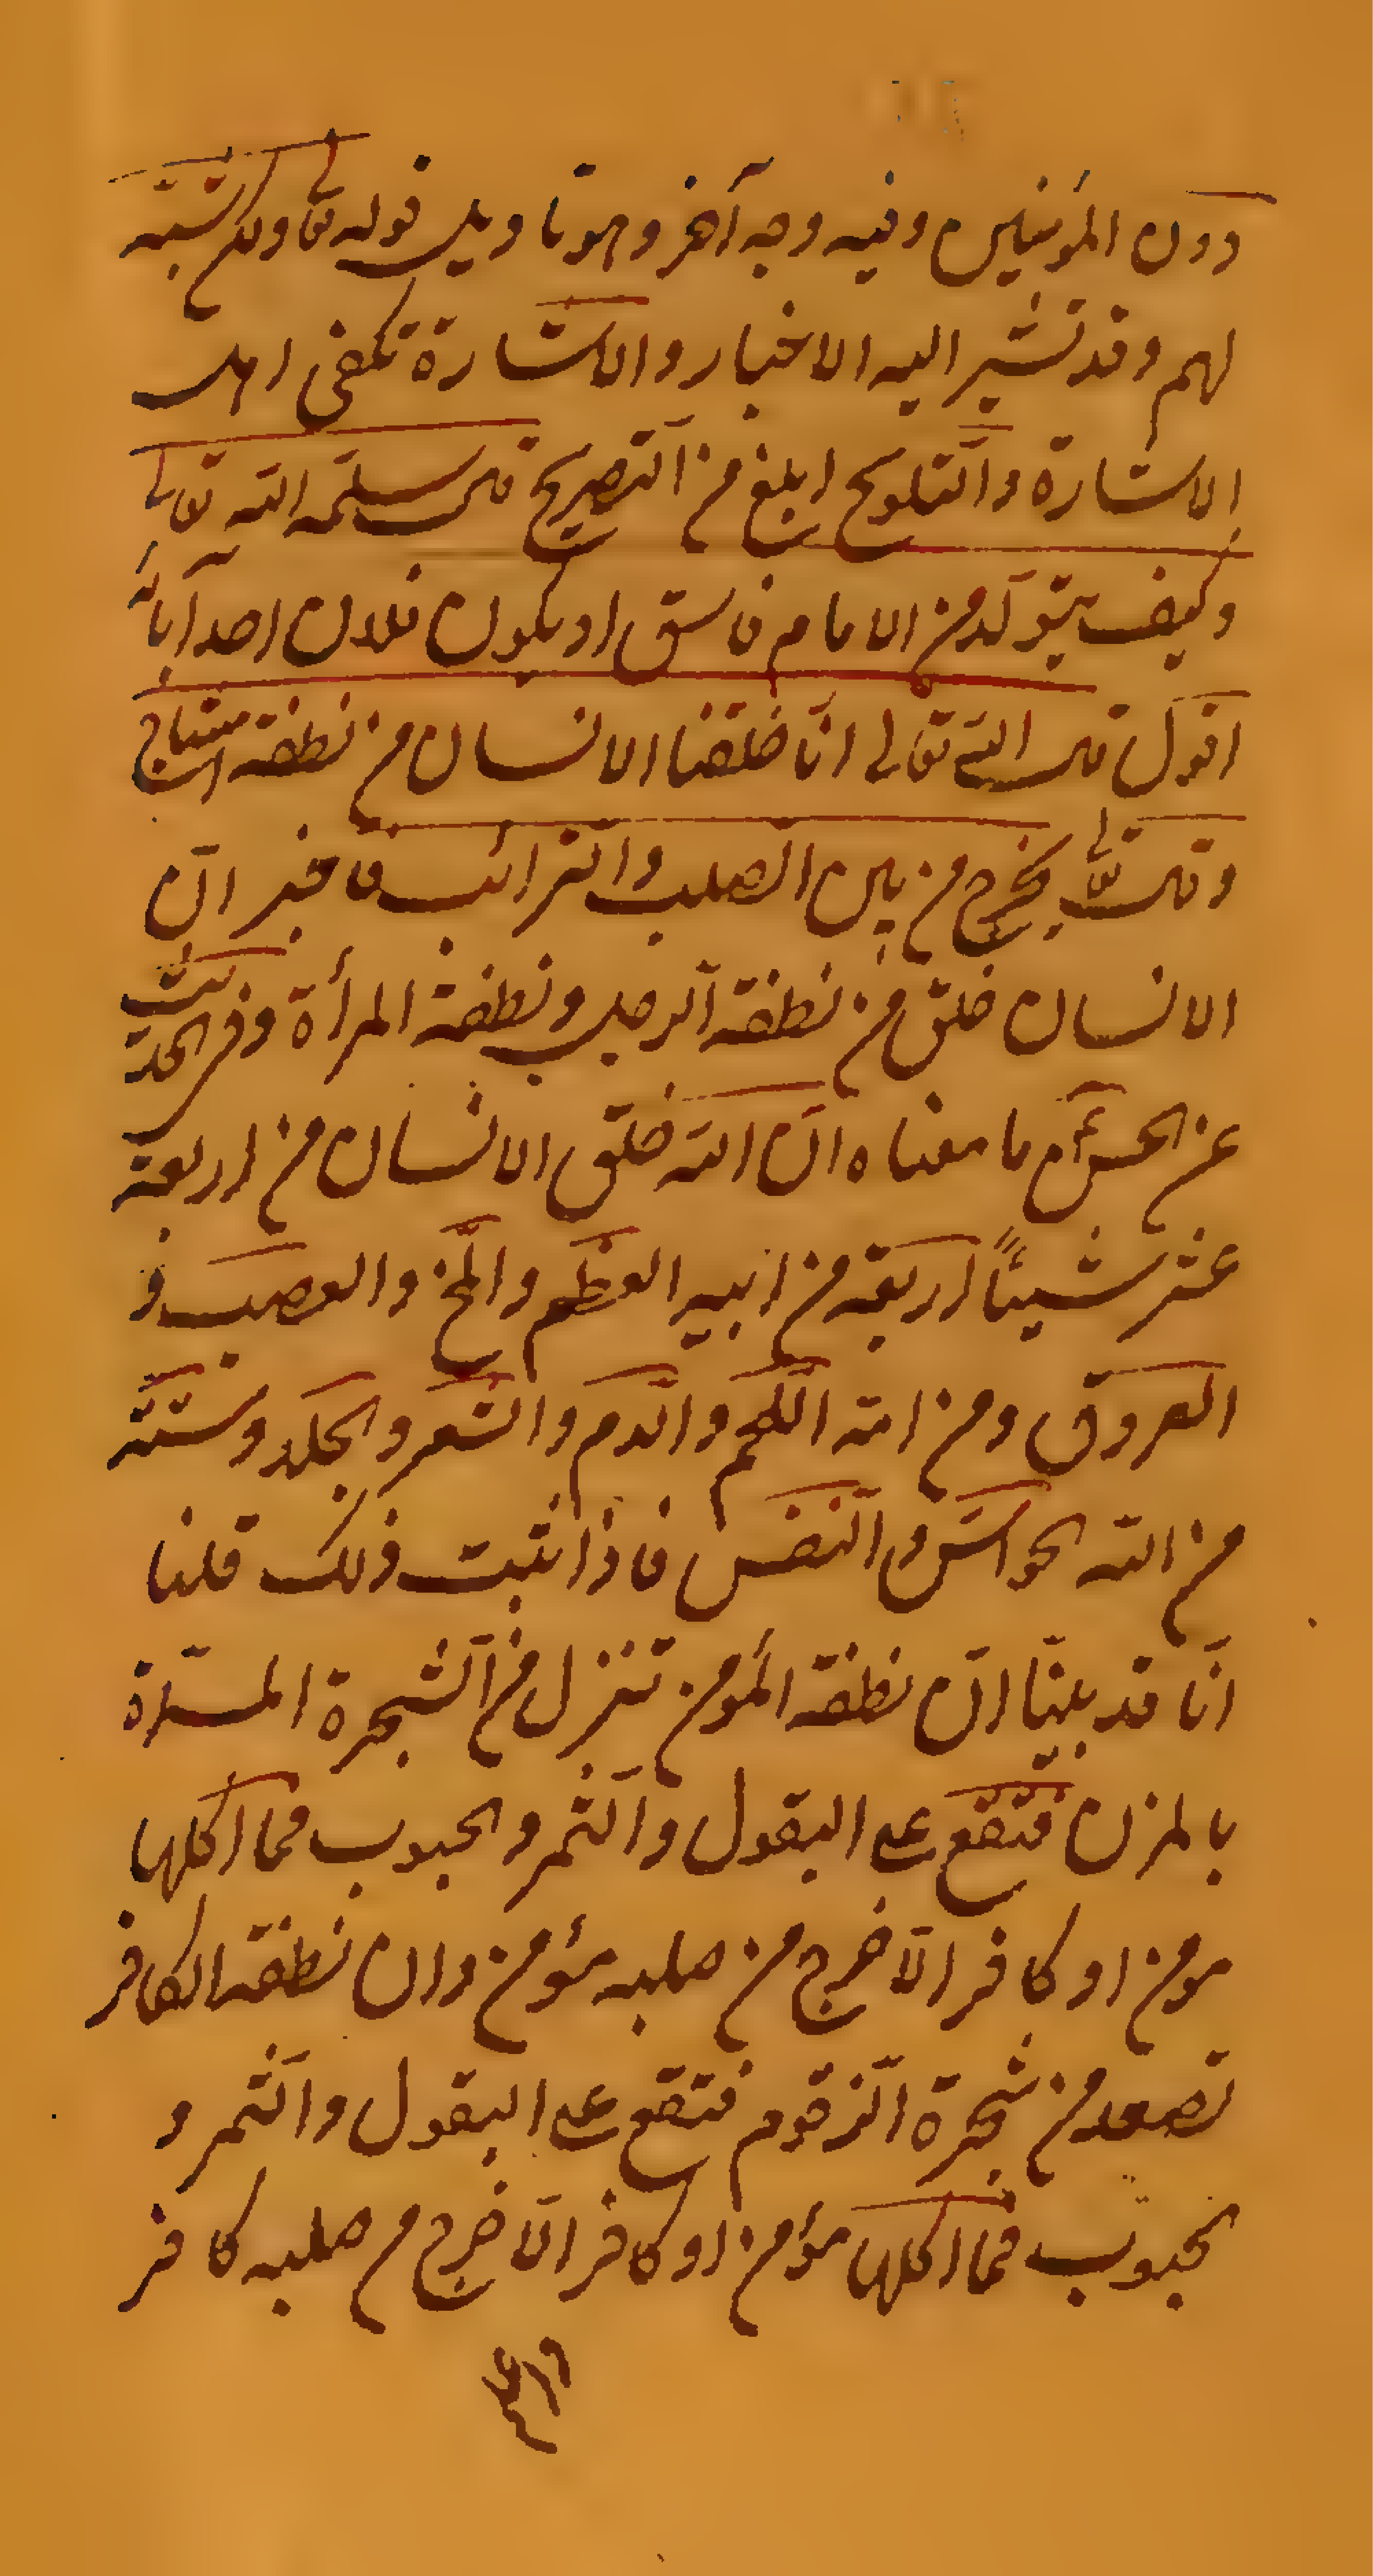 دون المؤمنين وفيه وجه آخر وهو تاويل قوله تعا ولكن شبه
لهم وقد تشير اليه الاخبار والاشارة تكفى اهل
الاشارة والتلويح ابلغ من التصريح قال سلمه الله تعالى
وكيف يتولد من الامام فاسق او يكون فلان احد آبائه
اقول قال الله تعالى انا خلقنا الانسان من نطفة امشاج
وقال تعالى يخرج من بين الصلب والترائب فاخبر ان
الانسان خلق من نطفة الرجل ونطفة المرأة وفى الحديث
عن الحسن ما معناه ان الله خلق الانسان من اربعة
عشر شيئاً اربعة من ابيه العظم والمخ والعصب و
العروق ومن امه اللحم والدم والشعر والجلد وستة
من الله الحواس والنفس فاذا ثبت ذلك قلنا
انا قد بينا ان نطفة المؤمن تنزل من الشجرة المسماة
بالمزن فتقع على البقول والثمر والحبوب فما اكلها
مومن او كافر الا خرج من صلبه مؤمن وان نطفة الكافر
تصعد من شجرة الزقوم فتقع على البقول والثمر و
لحبوب فما اكلها مؤمن او كافر الا خرج من صلبه كافر